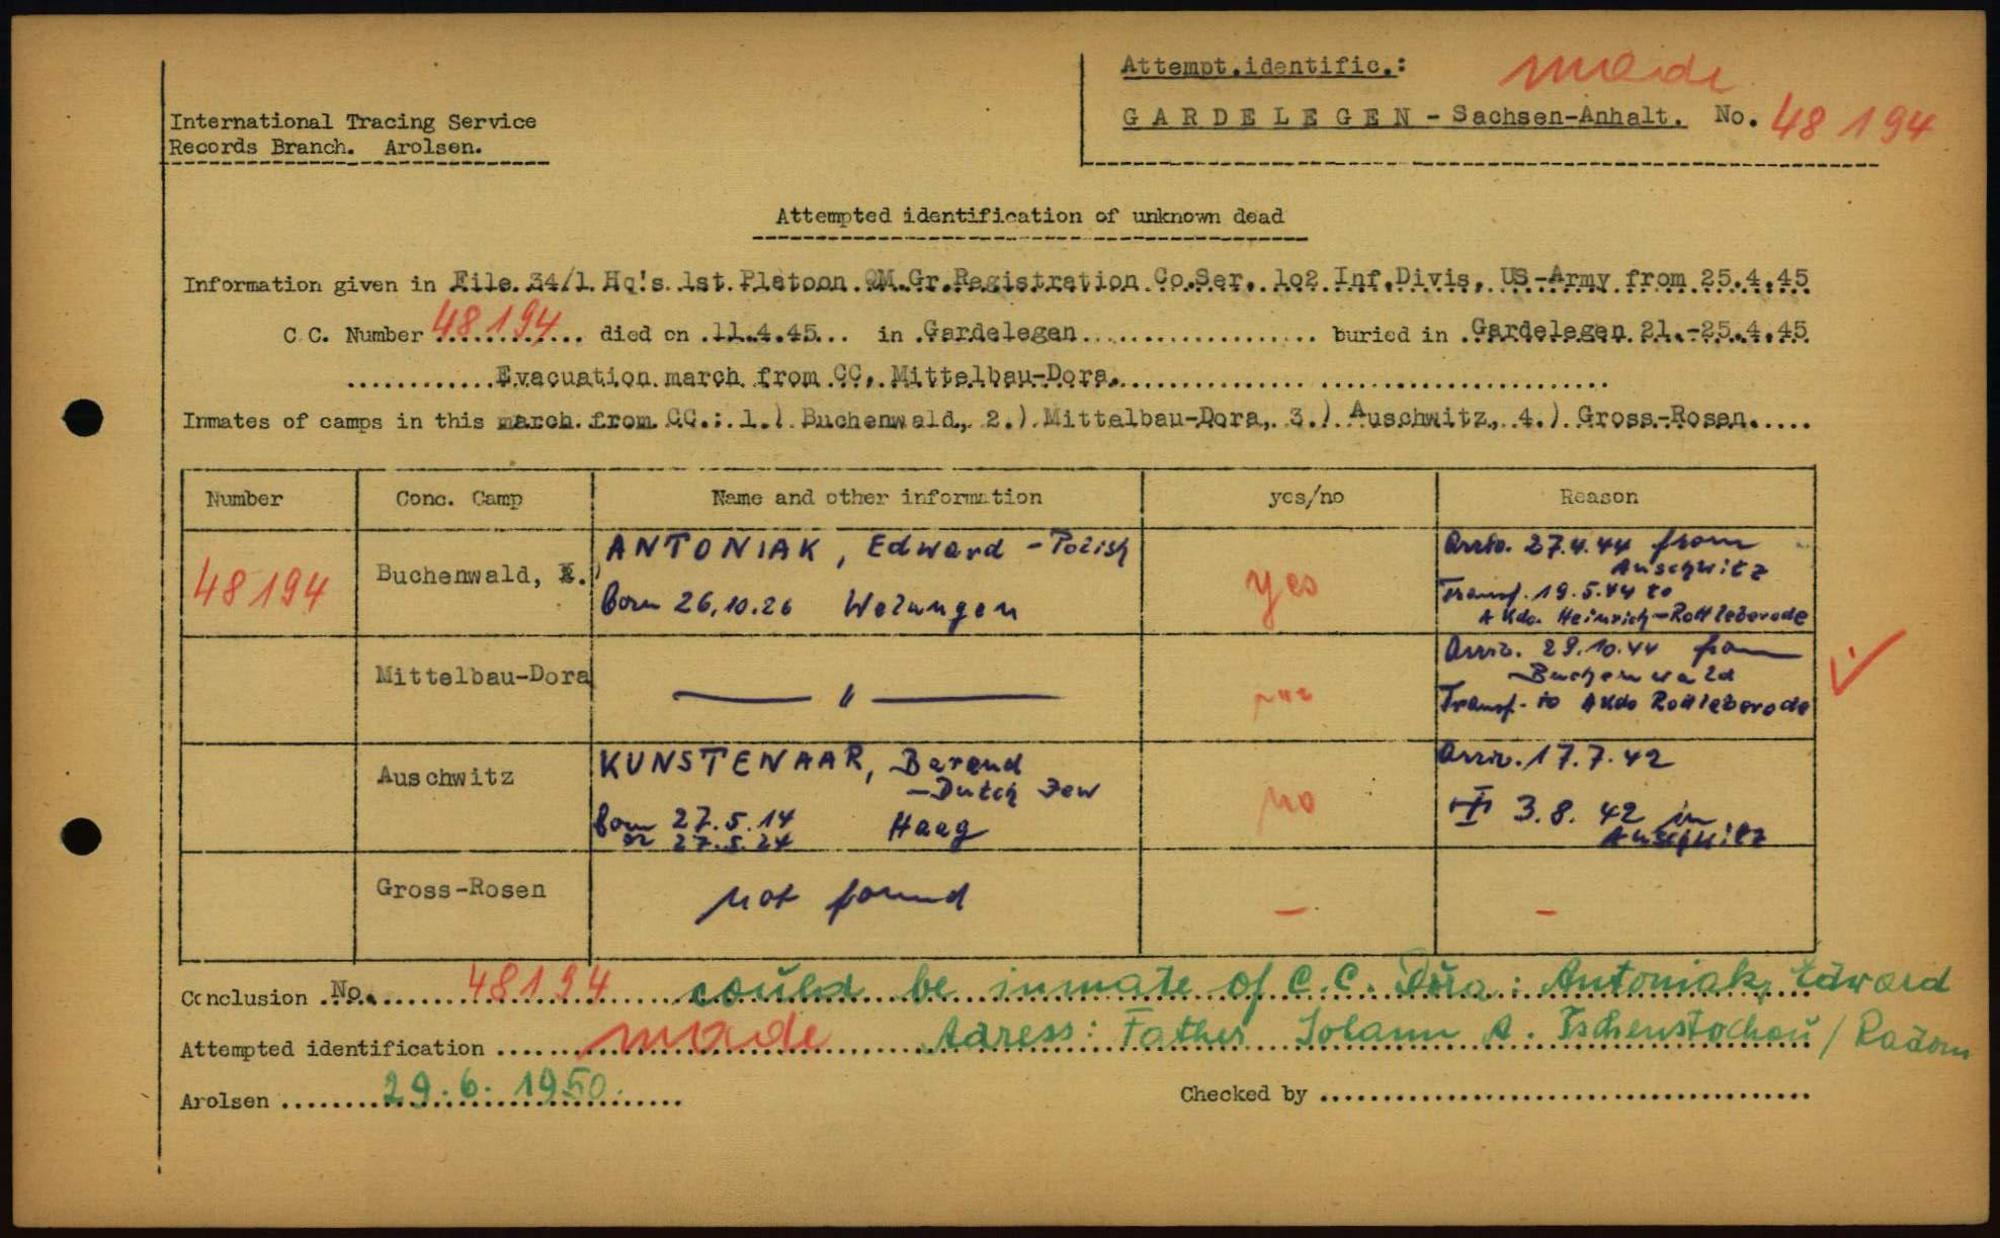 Attempt.identific.: made
International Tracing Service
Records Branch. Arolsen.
GARDELEGEN - Sachsen-Anhalt. No. 48194
Attempted identification of unknown dead
Information given in File 34/1 Hq's 1st Platoon QM.Gr.Registration Co.Ser, 1o2 Inf.Divis, US-Army from 25.4.45
C.C. Number 48194 died on 11.4.45 in Gardelegen buried in Gardelegen 21.-25.4.45
Evacuation march from CC. Mittelbau-Dora.
Inmates of camps in this march from CC.: 1.) Buchenwald, 2.) Mittelbau-Dora, 3.) Auschwitz, 4.) Gross-Rosen.
Number Conc. Camp Name and other information yes/no Reason
48194 Buchenwald, ANTONIAK, Edward - Polish
born 26.10.26 Welungen
yes
Arriv. 27.4.44 from
Auschwitz
Transf. 19.5.44 to
A Kdo. Heinrich-Rottleberode
Mittelbau-Dora — " —
Arriv. 29.10.44 from
Buchenwald
Transf. to AKdo Rottleberode
Auschwitz KUNSTENAAR, Barend
- Dutch Jew
born 27.5.14 Haag
or 27.5.24
no
Arriv. 17.7.42
3.8.42 in
Auschwitz
Gross-Rosen not found – –
Conclusion No. 48194 could be inmate of C.C. Dora: Antoniak, Edward
Attempted identification made Adress: Father Johann A. Tschenstochau / Radom
Arolsen 29.6.1950. Checked by